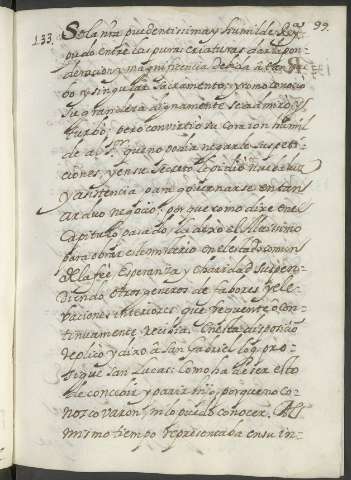 99.
133. Sola nra prudentissima y humilde Rey.ª
pudo entre las puras criaturas dar la pon-
deracion, y magnificencia debida a tan nue-
bo y singular Sacramento; y como conocio
su grandeza dignamente se admirò, y
turbò; pero convirtiò su corazon humil-
de al Sr. que no podia negarle sus peti-
ciones, y en su secreto le pidio nueba luz
y asistencia para governarse en tan
arduo negocio; por que como dixe en el
Capitulo pasado, la dexo el Altissimo
para obrar este misterio en el estado comun
de la fee, Esperanza, y Charidad suspen-
diendo otros generos de fabores y ele-
vaciones interiores que frequente, ò con-
tinuamente recivia. En esta disposicio
replico y dixo a San Gabriel lo q. pro-
sigue San Lucas: Como ha de ser esto
de concivir y parir hijo, porque no co-
nozco varon, ni lo puedo conocer, Al
mismo tiempo representaba en su in-